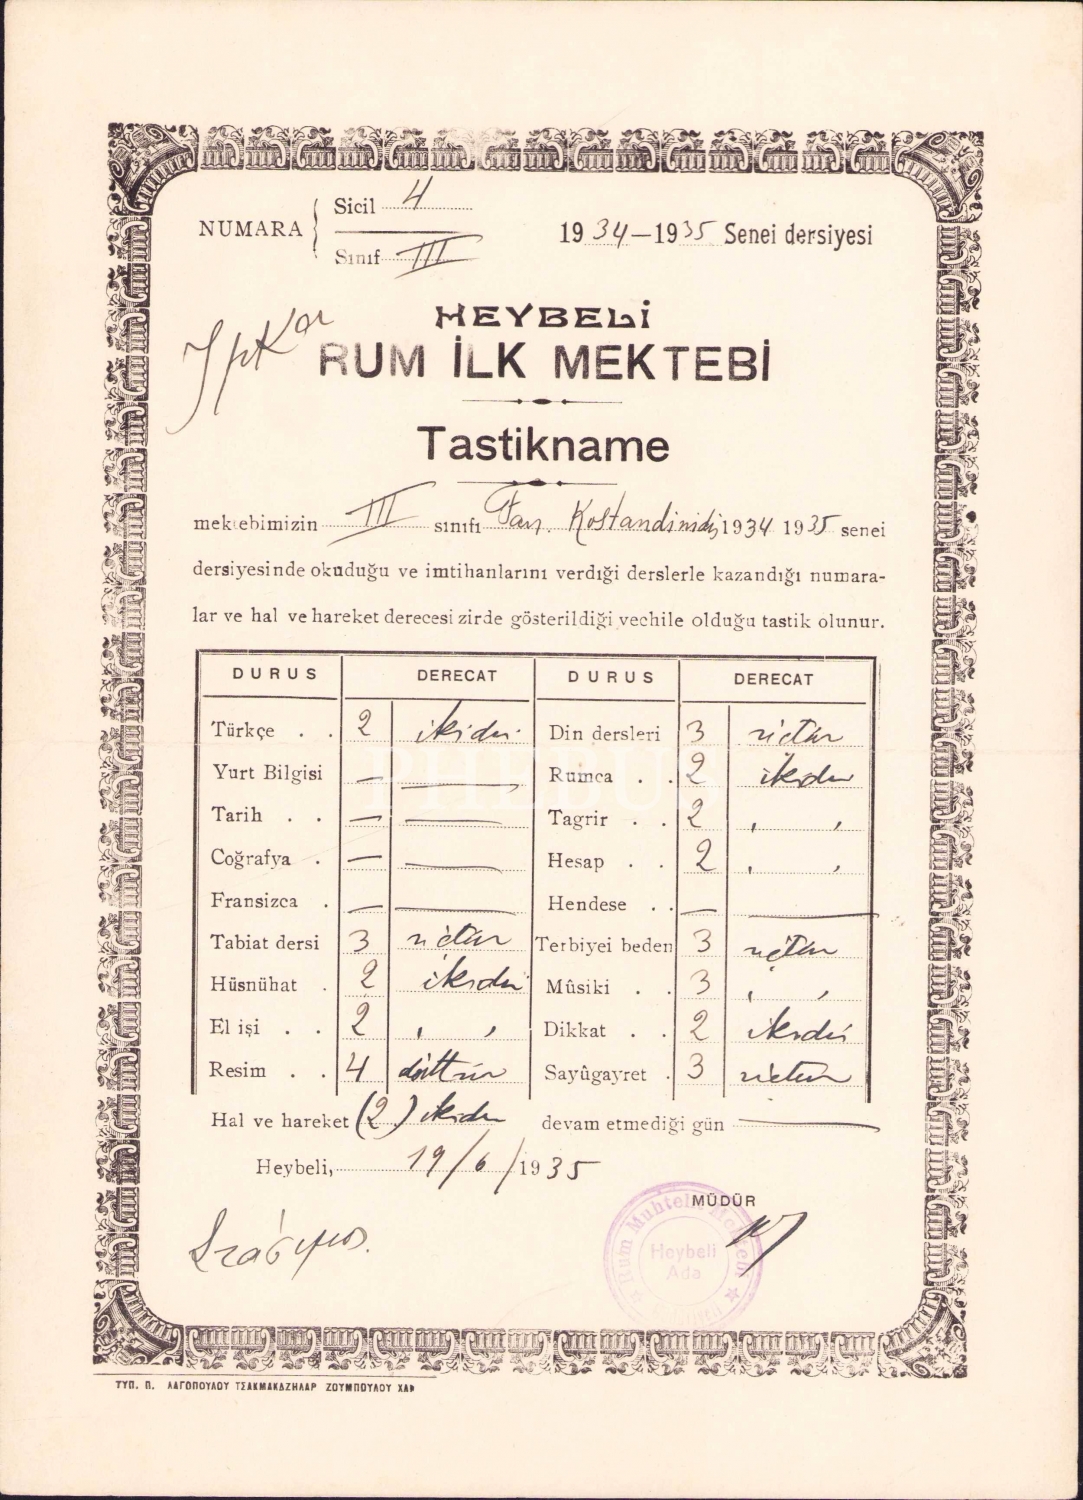 NUMARA { Sicil 4
Sınıf III
1934-1935 Senei dersiyesi
HEYBELİ
RUM İLK MEKTEBİ
Tastikname
mektebimizin III sınıfı Pan. Kostandinidis 1934 1935 senei
dersiyesinde okuduğu ve imtihanlarını verdiği derslerle kazandığı numara-
lar ve hal ve hareket derecesi zirde gösterildiği vechile olduğu tastik olunur.
DURUS DERECAT DURUS DERECAT
Türkçe . . 2 ikidir Din dersleri 3 üçtür
Yurt Bilgisi — — Rumca . . 2 ikidir
Tarih . . — — Tagrir . . 2 , ,
Coğrafya . — — Hesap . . 2 , ,
Fransizca . — — Hendese . . — —
Tabiat dersi 3 üçtür Terbiyei beden 3 üçtür
Hüsnühat . 2 ikidir Mûsiki . . 3 , ,
El işi . . 2 , , Dikkat . . 2 ikidir
Resim . . 4 dörttür Sayûgayret . 3 üçtür
Hal ve hareket (2) ikidir devam etmediği gün —
Heybeli, 19/6/1935
MÜDÜR
Rum Muhtelit Mektebi
Heybeli
Ada
ΤΥΠ. Π. ΛΑΓΟΠΟΥΛΟΥ ΤΣΑΚΜΑΚΔΖΗΛΑΡ ΖΟΥΜΠΟΥΛΟΥ ΧΑΝ
PHEBUS